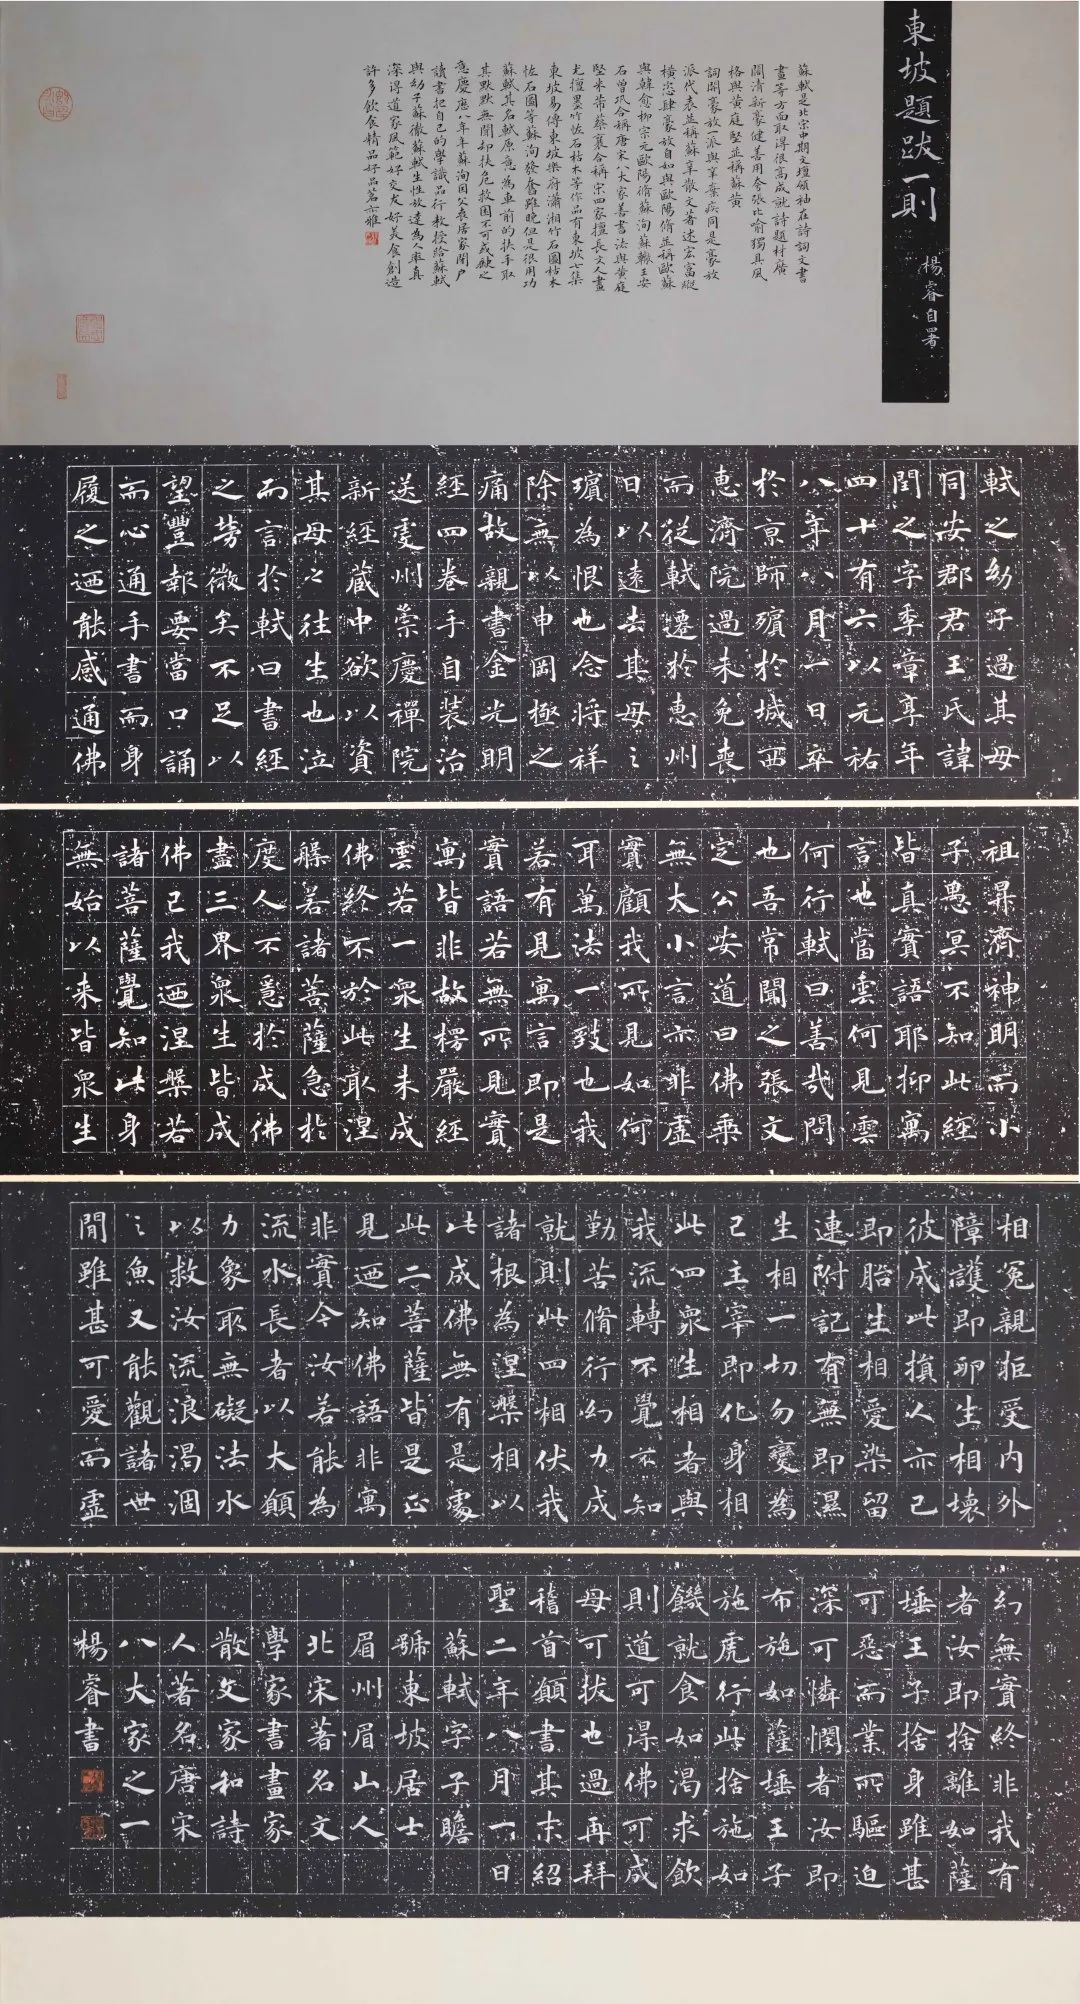 東坡題跋一則
楊睿自署
蘇軾是北宋中期文壇領袖在詩詞文書
畫等方面取得很高成就詩題材廣
闊清新豪健善用夸張比喻獨具風
格與黃庭堅並稱蘇黃
詞開豪放一派與辛棄疾同是豪放
派代表並稱蘇辛散文著述宏富縱
橫恣肆豪放自如與歐陽脩並稱歐蘇
與韓愈柳宗元歐陽脩蘇洵蘇轍王安
石曾鞏合稱唐宋八大家善書法與黃庭
堅米芾蔡襄合稱宋四家擅長文人畫
尤擅墨竹恠石枯木等作品有東坡七集
東坡易傳東坡樂府瀟湘竹石圖枯木
恠石圖等蘇洵發奮雖晚但是很用功
蘇軾其名軾原意為車前的扶手取
其默默無聞却扶危救困不可或缺之
意慶應八年年蘇洵因父喪居家閉戶
讀書把自己的學識品行教授給蘇軾
與幼子蘇轍蘇軾生性放達為人率真
深得道家風範好交友好美食創造
許多飲食精品好品茗亦雅
軾之幼子過其母
同安郡君王氏諱
閏之字季章享年
四十有六以元祐
八年八月一日卒
於京師殯於城西
惠濟院過未免喪
而從軾遷於惠州
日以遠去其母之
殯為恨也念將祥
除無以申罔極之
痛故親書金光明
經四卷手自裝治
送虔州崇慶禪院
新經藏中欲以資
其母之往生也泣
而言於軾曰書經
之勞微矣不足以
望豐報要當口誦
而心通手書而身
履之迺能感通佛
祖昇濟神明而小
子愚冥不知此經
皆真實語耶抑寓
言也當雲何見雲
何行軾曰善哉問
也吾常聞之張文
定公安道曰佛乘
無大小言亦非虛
實顧我所見如何
耳萬法一致也我
若有見寓言即是
實語若無所見實
寓皆非故楞嚴經
雲若一眾生未成
佛終不於此取涅
槃若諸菩薩急於
度人不急於成佛
盡三界眾生皆成
佛已我迺涅槃若
諸菩薩覺知此身
無始以来皆眾生
相冤親拒受內外
障護即卵生相壞
彼成此損人亦己
即胎生相愛染留
連附記有無即濕
生相一切勿變為
己主宰即化身相
此四眾生相者與
我流轉不覺不知
勤苦脩行幻力成
就則此四相伏我
諸根為涅槃相以
此成佛無有是處
此二菩薩皆是正
見迺知佛語非寓
非實今汝若能為
流水長者以大願
力象取無礙法水
以救汝流浪渴涸
之魚又能觀諸世
間雖甚可愛而虛
幻無實終非我有
者汝即捨離如薩
埵王子捨身雖甚
可惡而業所驅迫
深可憐憫者汝即
布施如薩埵王子
施虎行此捨施如
饑就食如渴求飲
則道可得佛可成
母可拔也過再拜
稽首願書其末紹
聖二年八月一日
蘇軾字子瞻
號東坡居士
眉州眉山人
北宋著名文
學家書畫家
散文家和詩
人著名唐宋
八大家之一
楊睿書